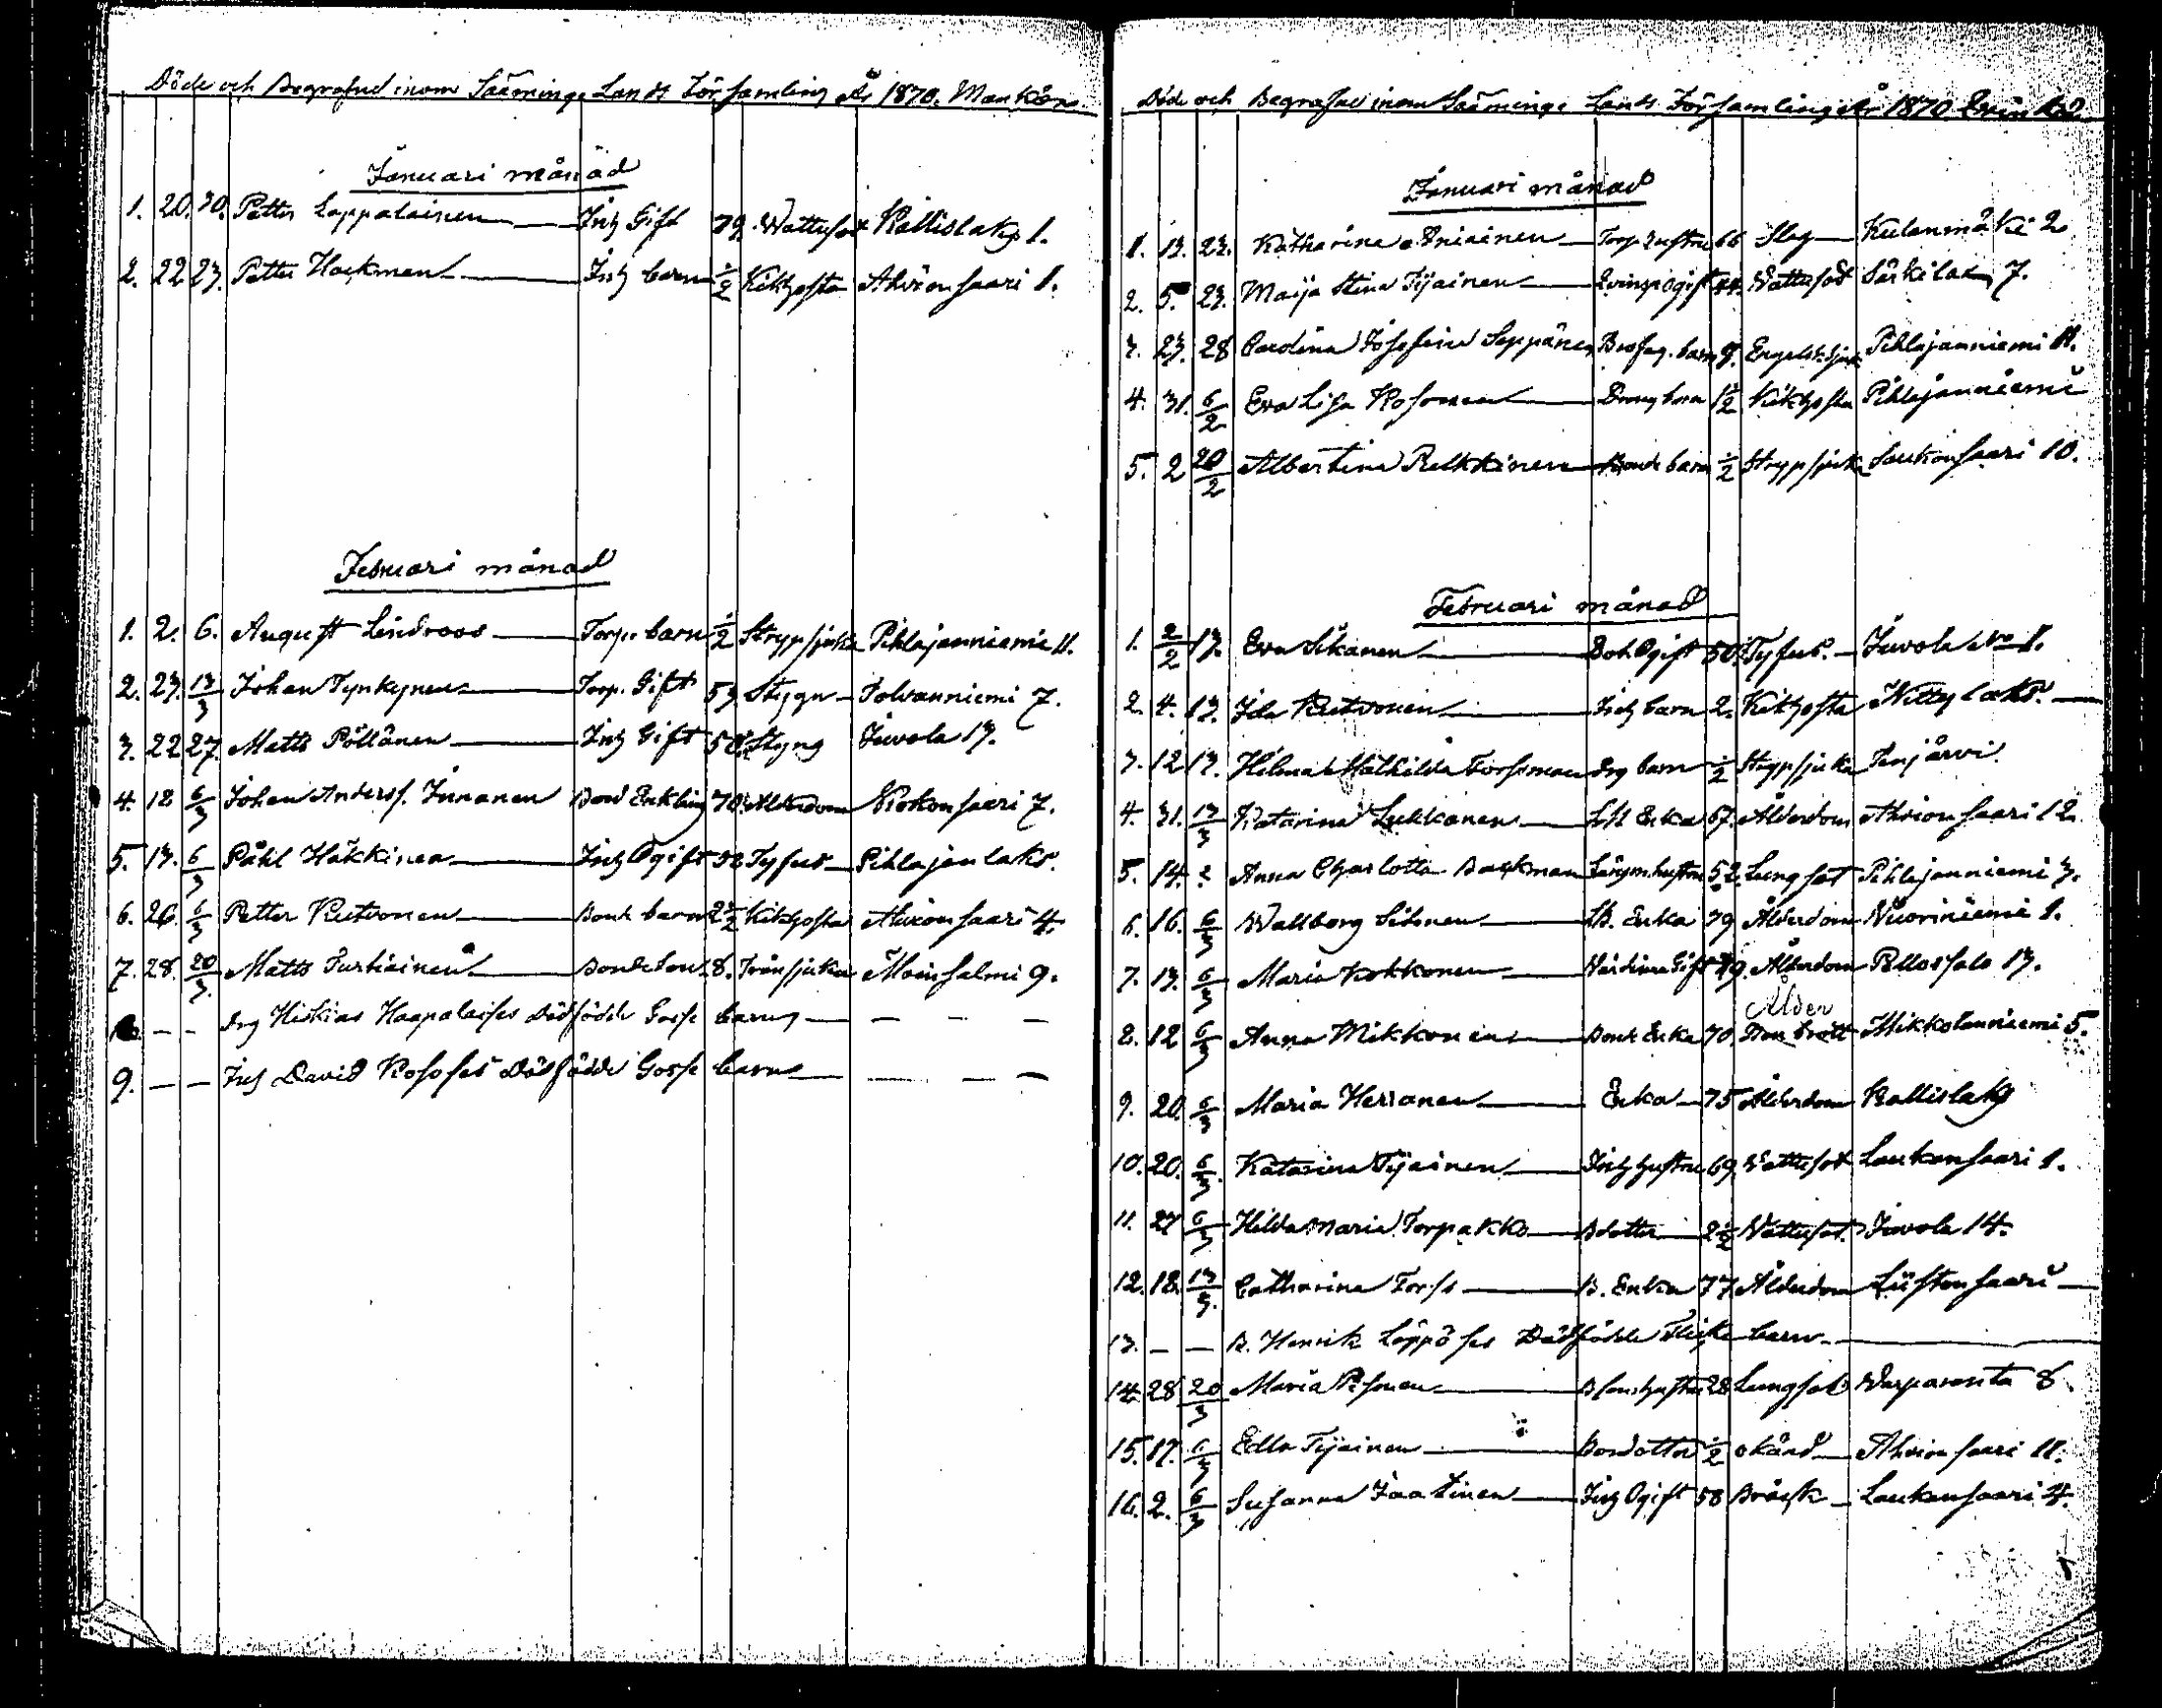 Döde och Begrafne inom Sääminge Lands Församling År 1870. Mankön
Januari månad
1. 20. 30. Petter Lappalainen Inh Gift 79. Wattusot Kallislaks 1.
2. 22 23. Petter Hackman Inh barn ½ Kikhosta Ahvionsaari 1.
Februari månad
1. 2. 6. August Lindroos Torp. barn ½ Strypsjuka Pihlajaniemi 11.
2. 23. 13/3 Johan Tynkynen Torp. Gift 53 Stygn Tolvanniemi 7.
3. 22 27. Matts Pöllänen Inh Gift 58. Styng Juvola 13.
4. 18 6/3 Johan Anderss. Innanen Bond Enkling 70. Ålderdom Kokonsaari 7.
5. 13. 6/3 Påhl Häkkinen Inh Ogift Tyfus Pihlajanlaks.
6. 26. 6/3 Petter Rutvonen Bond barn 2½ Kikhosta Ahvionsaari 4.
7. 28. 20/3. Matts Turtiainen Bondeson 8. Moinsalmi 9.
— — Drg Hiskias Haapalaises Dödfödde Gosse barn — — — —
9. — — Inh David Kososes Dödfödde Gosse barn — — —
Döde och Begrafne inom Sääminge Lands Församling År 1870 Qvinkön.
Januari månad
1. 13. 23. Katharina Aniainen Torp hustru 66 Slag Kulenmäki 2
2. 5. 23. Maija Stina Tijainen Ogift 44. Wattusot Särkilaks 7.
3. 23. 28 Josefina Seppänen barn 9. Engelsk sjuk Pihlajanniemi 11.
4. 31. 6/2 Eva Lisa Kosonen Dreng barn 1½ Kikhosta Pihlajanniemi
5. 2 20/2 Albertina Pulkkinen Bonde barn ½ Strypsjuka Laukansaari 10.
Februari månad
1. 2/2 13. Eva Sikanen Ogift 50. Tyfus. Juvola No 1.
2. 4. 13. Ida Rutvonen Inh barn 2. Kikhosta Nittylaks.
3. 12 13. Hilma Mathilda Forssman Drg barn ½ Strypsjuka
4. 31. 13/3 Katarina Lukkanen Enka 67. Ålderdom Ahvionsaari 12.
5. 14. ? Anna Charlotta Backman hustru 52. Lungsot Pihlajanniemi 3.
6. 16. 6/3 Wallborg Silvnen Enka 79 Ålderdom Nuoriniemi 1.
7. 13. 6/3 Maria Kokkonen Gift 79. Ålderdom Pellossalo 13.
Ålder
8. 12 6/3 Anna Mikkonen Bond Enka 70. Mikkolanniemi 5.
9. 20. 6/3 Maria Herranen Enka 75 Ålderdom Kallislaks
10. 20. 6/3 Katarina Tijainen Inh hustru 69. Wattusot Laukansaari 1.
11. 27 6/3 Hilda Maria Torpakko B dotter 2½ Wattusot. Juvola 14.
12. 18. 13/3. Catharina Forss B. Enka 77. Ålderdom Liistonsaari
13. — — B. Henrik Löppöses Dödfödde Flicke barn
14. 28 20/3 Maria Pesonen hustru 28 Lungsot Warparanta 8.
15. 17. 6/3 Edla Tijainen Bondotter ½ okänd Ahvionsaari 11.
16. 2. 6/3 Susanna Jaatinen Inh Ogift 58 Bräck Laukansaari 4.